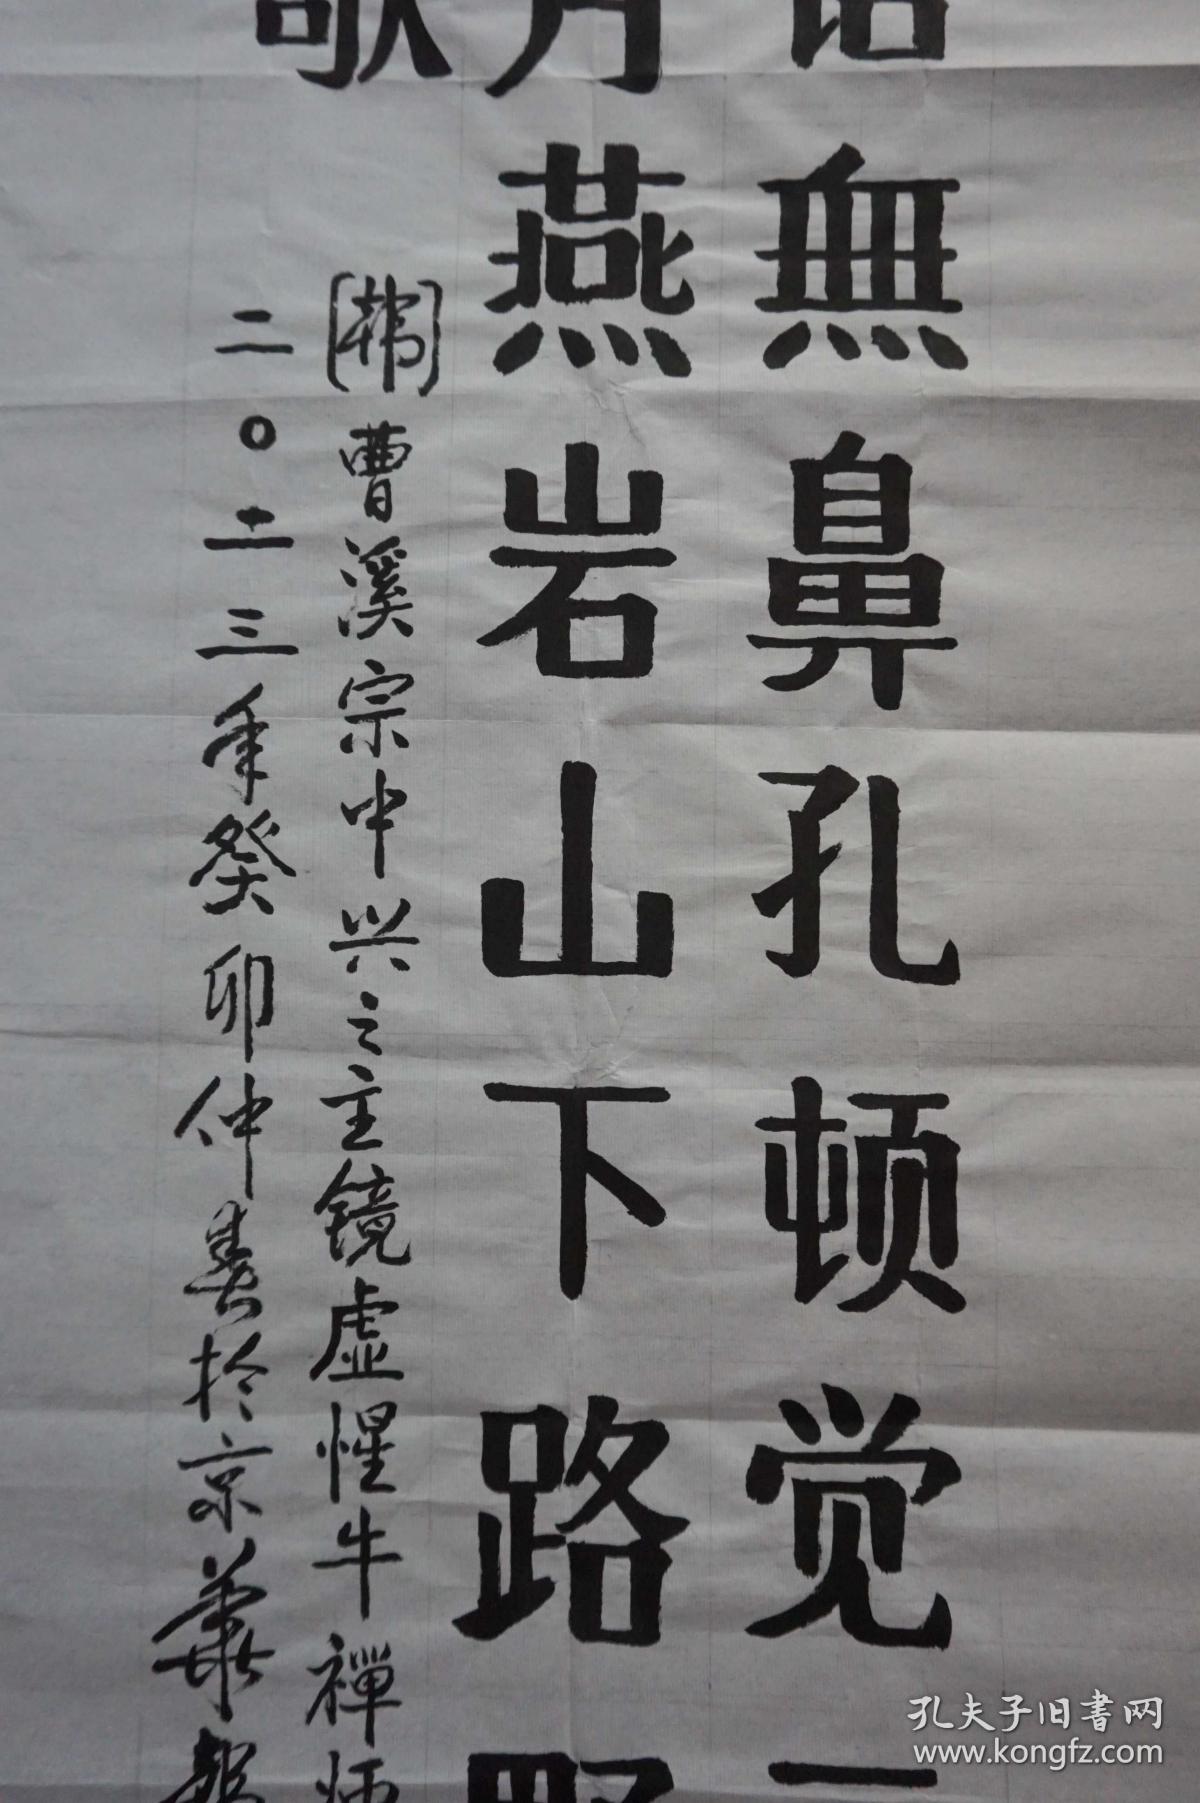 語無鼻孔顿觉三
月燕岩山下路野
歌
[韩]曹溪宗中兴之主镜虚惺牛禅师
二〇二三年癸卯仲春於京华
孔夫子旧书网
www.kongfz.com